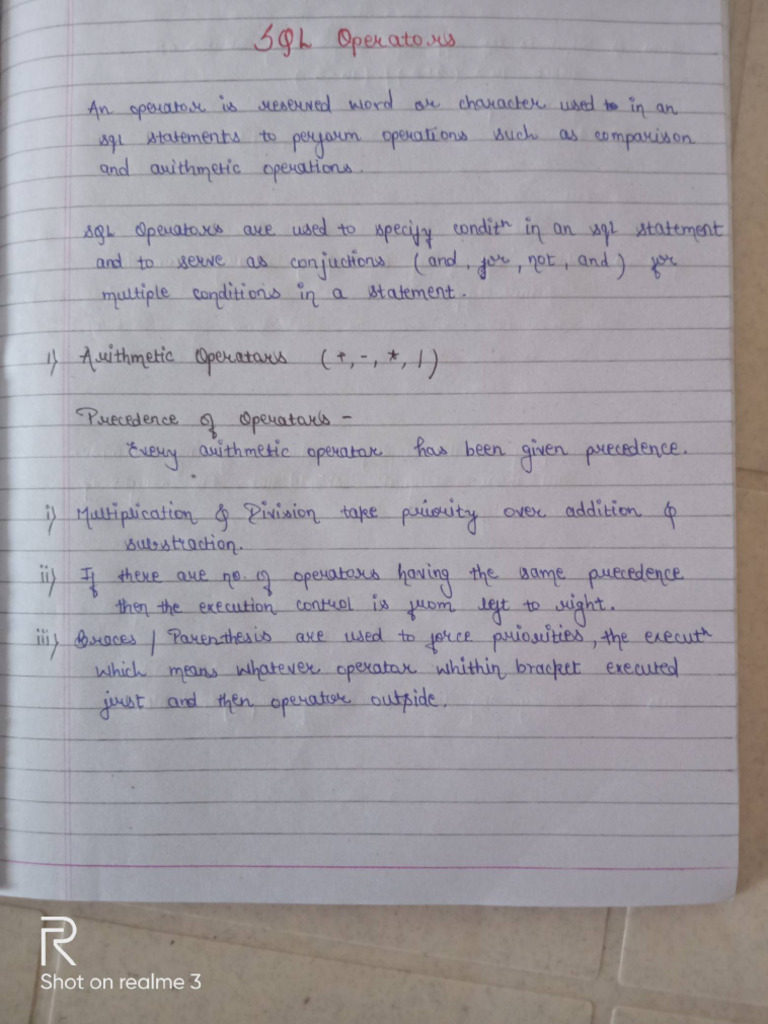 SQL Operators
An operator is reserved word or character used to in an
sql statements to perform operations such as comparison
and arithmetic operations.
SQL Operators are used to specify conditn in an sql statement
and to serve as conjuctions (and, for, not, and) for
multiple conditions in a statement.
1) Arithmetic Operators (+, -, *, /)
Precedence of Operators -
Every arithmetic operator has been given precedence.
i) Multiplication & Division take priority over addition &
substraction.
ii) If there are no. of operators having the same precedence
then the execution control is from left to right.
iii) Braces / Parenthesis are used to force priorities, the executn
which means whatever operator whithin bracket executed
first and then operator outside.
R
Shot on realme 3